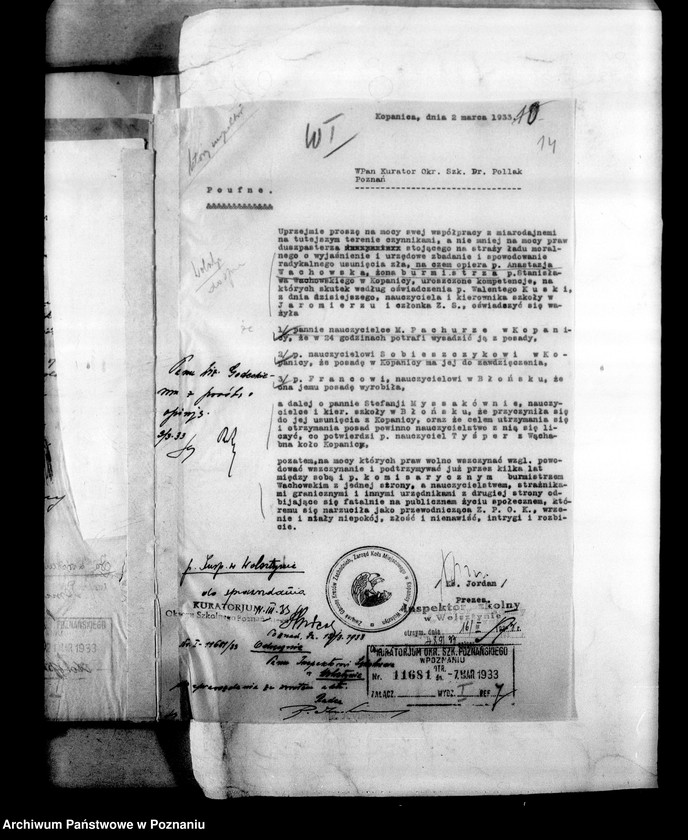 Kopanica, dnia 2 marca 1933.
14
W I
WPan Kurator Okr. Szk. Dr. Pollak
Poznań
Poufne.
Uprzejmie proszę na mocy swej współpracy z miarodajnemi
na tutejszym terenie czynnikami, a nie mniej na mocy praw
duszpasterza stojącego na straży ładu moral-
nego o wyjaśnienie i urzędowe zbadanie i spowodowanie
radykalnego usunięcia zła, na czem opiera p. Anastazja
Wachowska, żona burmistrza p. Stanisła-
wa Wachowskiego w Kopanicy, uroszczone kompetencje, na
których skutek według oświadczenia p. Walentego Kuski,
z dnia dzisiejszego, nauczyciela i kierownika szkoły w
Jaromierzu i członka Z. S., oświadczyć się wa-
żyła
1/ pannie nauczycielce M. Pachurze w Kopani-
cy, że w 24 godzinach potrafi wysadzić ją z posady,
2/ p. nauczycielowi Sobieszczykowi w Ko-
panicy, że posadę w Kopanicy ma jej do zawdzięczenia,
3/ p. Francowi, nauczycielowi w Błońsku, że
ona jemu posadę wyrobiła,
a dalej o pannie Stefanji Myszakównie, nauczy-
cielce i kier. szkoły w Błońsku, że przyczyniła się
do jej usunięcia z Kopanicy, oraz że celem utrzymania się
i otrzymania posad powinno nauczycielstwo z nią się li-
czyć, co potwierdzi p. nauczyciel Tyśper z Wącha-
bna koło Kopanicy,
pozatem, na mocy których praw wolno wszczynać wzgl. powo-
dować wszczynanie i podtrzymywać już przez kilka lat
między sobą i p. komisarycznym burmistrzem
Wachowskim z jednej strony, a nauczycielstwem, strażnikami
granicznymi i innymi urzędnikami z drugiej strony od-
bijające się fatalnie na publicznem życiu społecznem, któ-
remu się narzuciła jako przewodnicząca Z. P. O. K., wrze-
nie i stały niepokój, złość i nienawiść, intrygi i rozbi-
cie.
/Ks. Jordan/
Prezes.
p. Insp. w Wolsztynie
do sprawdzenia
KURATORJUM
Okręgu Szkolnego Poznańskiego
Inspektor Szkolny
w Wolsztynie
otrzym. dnia
KURATORJUM OKR. SZK. POZNAŃSKIEGO
W POZNANIU
Nr. 11681 dn. -7.MAR 1933
ZAŁĄCZ. WYDZ. I REF. 7
Archiwum Państwowe w Poznaniu